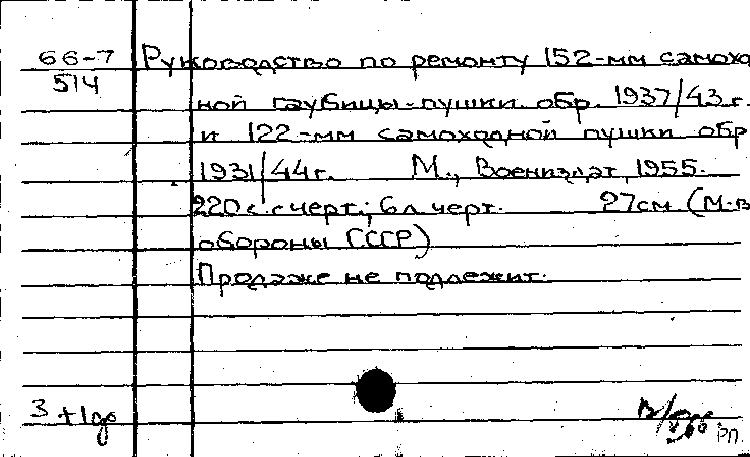 66-7
514
Руководство по ремонту 152-мм самохо
ной гаубицы-пушки обр. 1937/43 г.
и 122-мм самоходной пушки обр
1931/44 г. М., Воениздат, 1955.
220 с. с черт.; 6 л. черт. 27 см (М-в
обороны СССР)
Продаже не подлежит.
3 + 1 др
РП.